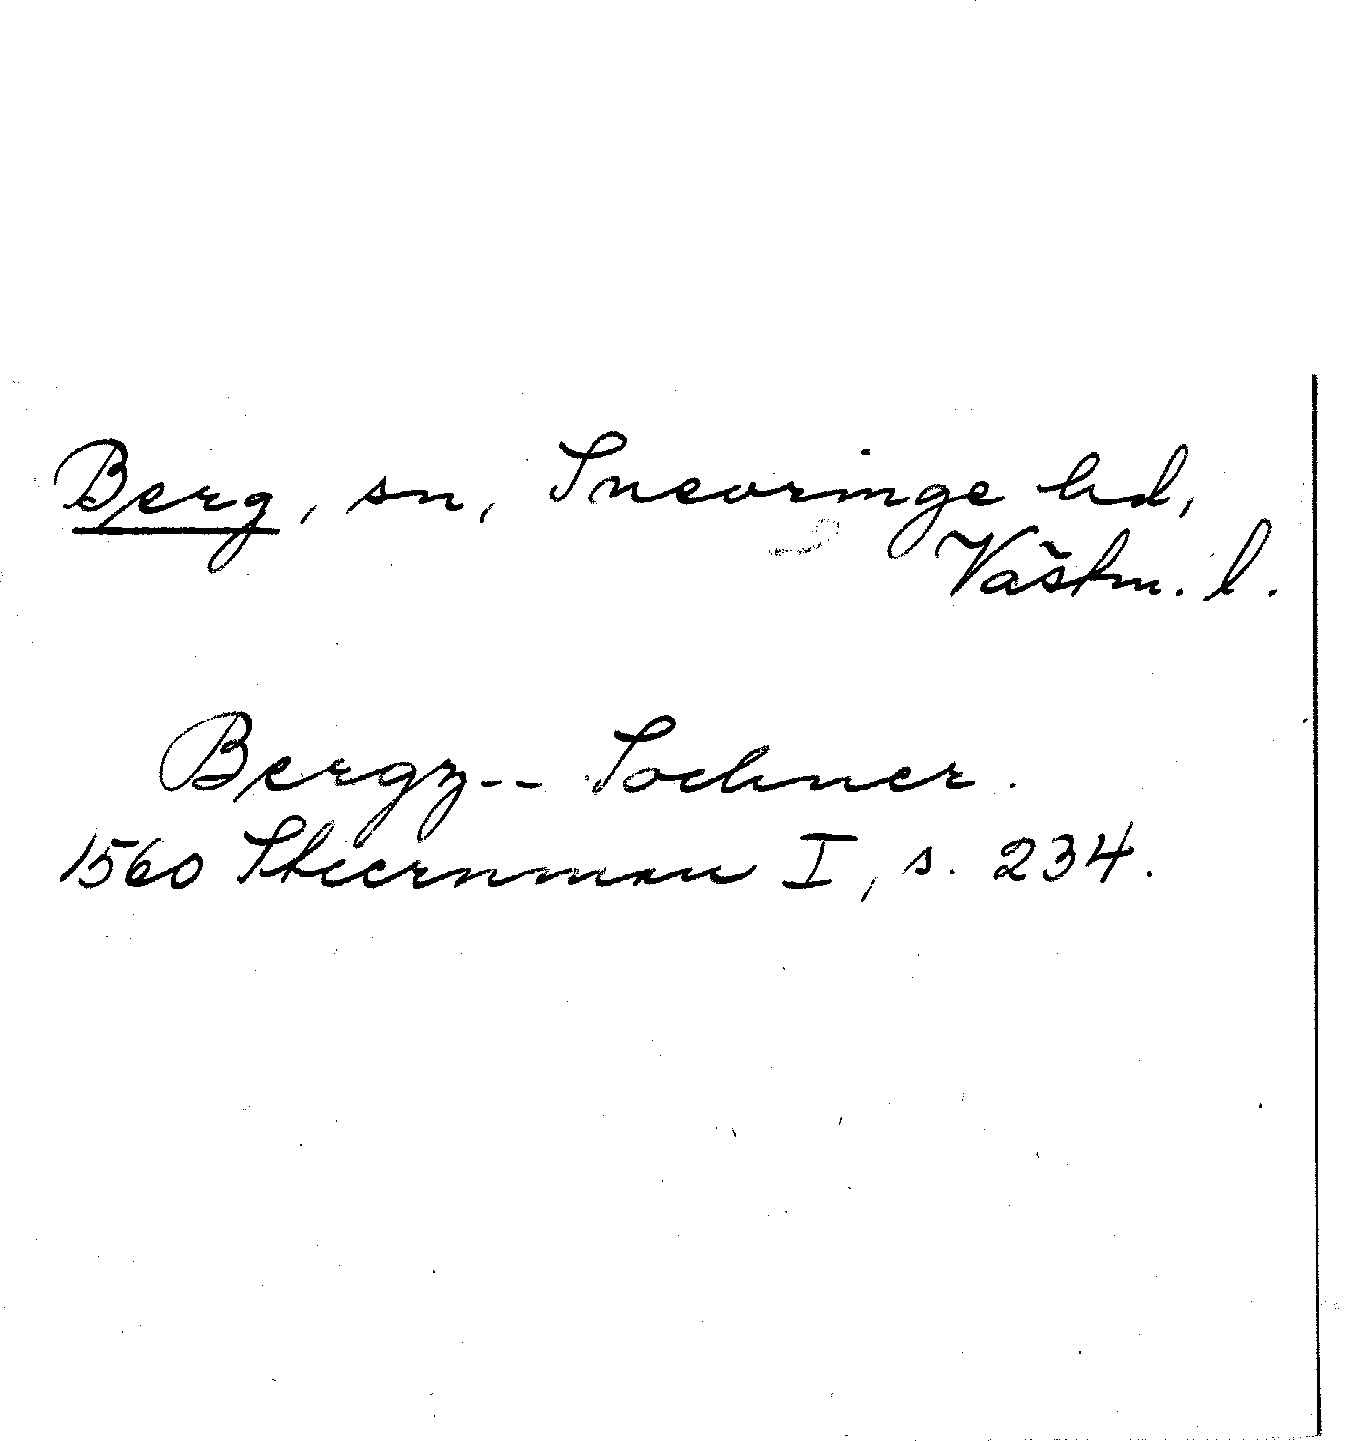 Berg, sn, Snevringe hd,
Västm. l.
Bergz-- Sochner.
1560 Stiernman I, s. 234.